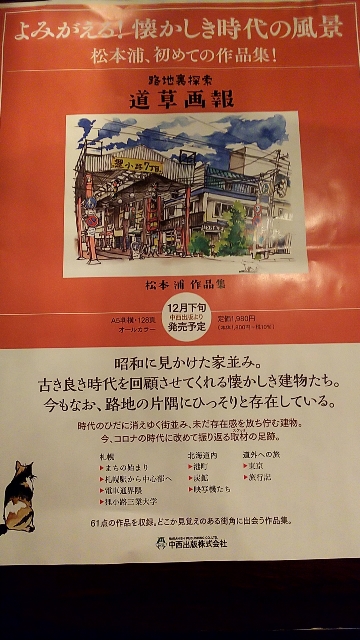 よみがえる!懐かしき時代の風景
松本浦、初めての作品集!
路地裏探索
道草画報
狸小路7丁目
松本 浦 作品集
A5判横・128頁
オールカラー
12月下旬
中西出版より
発売予定
定価1,980円
(本体1,800円+税10%)
昭和に見かけた家並み。
古き良き時代を回顧させてくれる懐かしき建物たち。
今もなお、路地の片隅にひっそりと存在している。
時代のひだに消えゆく街並み、未だ存在感を放ち佇む建物。
今、コロナの時代に改めて振り返る取材の足跡。
札幌
▶まちの始まり
▶札幌駅から中心部へ
▶電車通界隈
▶狸小路三業大学
北海道内
▶港町
▶炭鉱
▶映写機たち
道外への旅
▶東京
▶旅行記
61点の作品を収録。どこか見覚えのある街角に出会う作品集。
中西出版株式会社